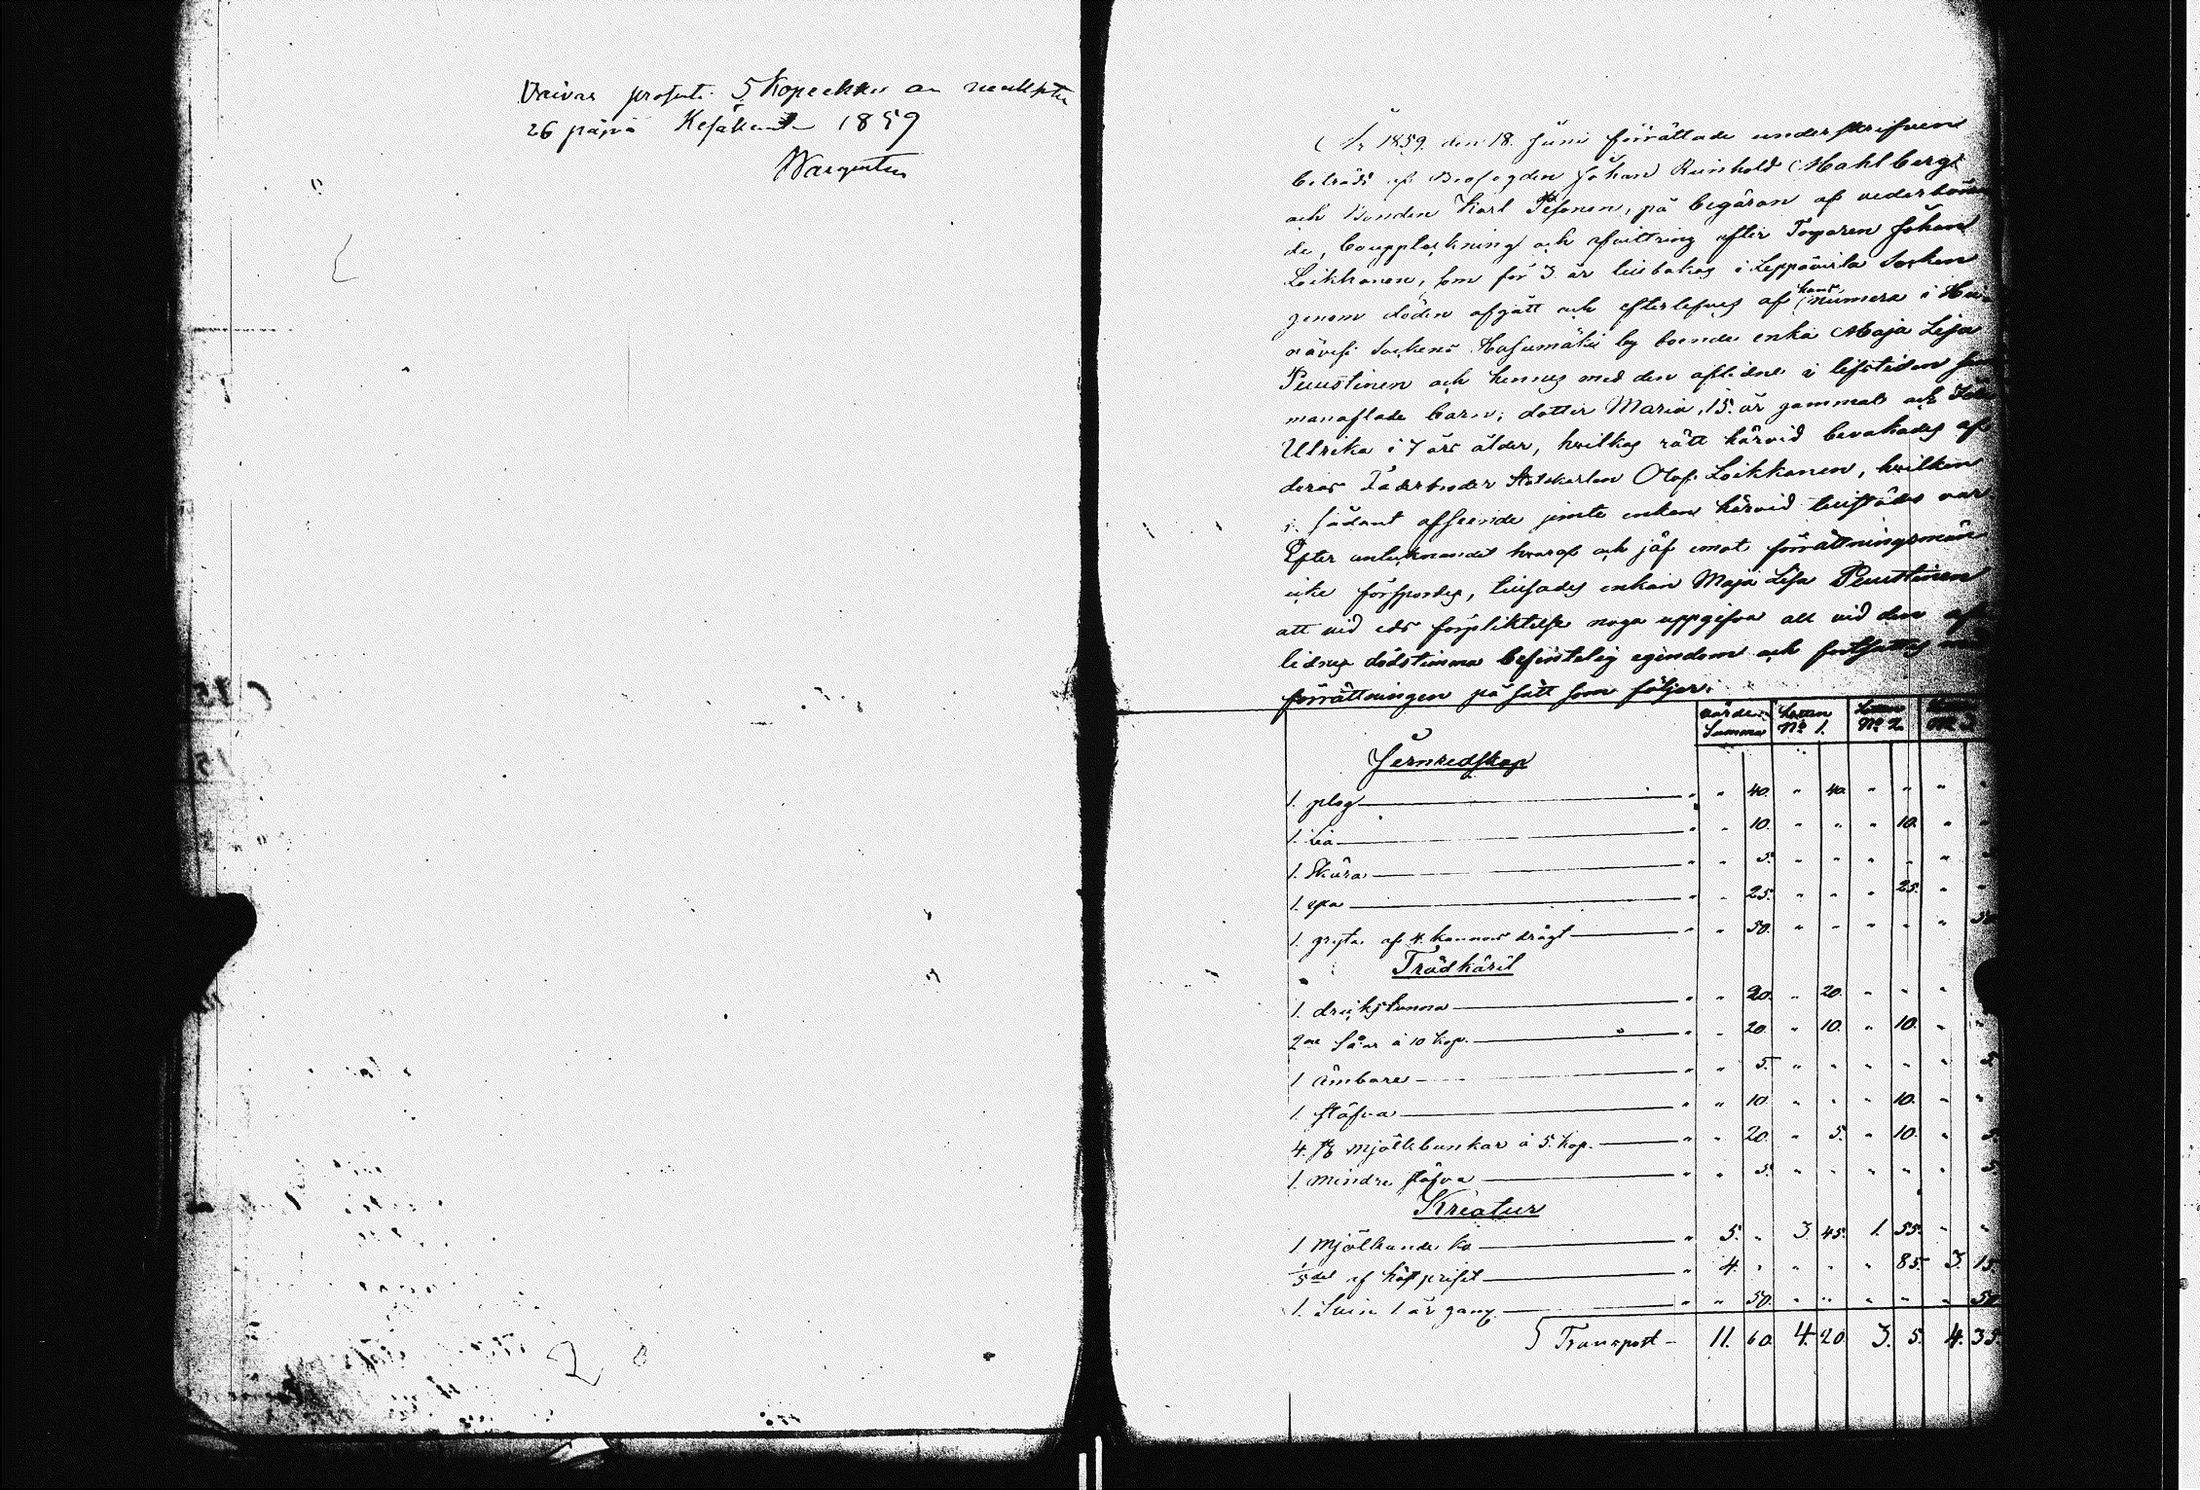 Vaivas prosenti 5 Kopeekkaa on
26 päivä Kesäkuuta 1859
Wargentin
År 1859. den 18. Juni förrättade underskrifven
biträdd af Brofogden Johan Reinhold Mahlberg
och Bonden Karl Pesonen, på begäran af vederböran
de, bouppteckning och afvittring efter Torparen Johan
Loikkanen, som för 3 år tillbakas i Leppävirta Socken
genom döden afgått och efterlefves af hans numera i
nävesi Sockens Hasumäki by boende enka Maja Lisa
Puustinen och hennes med den aflidne i lifstiden
manaflade barn; dotter Maria, 15. år gammal och
Ulrika i 7 års ålder, hvilkas rätt härvid bevakades af
deras Faderbroder Statskarlen Olof Loikkanen, hvilken
i sådant afseende jemte enkan härvid tillstädes var
Efter antecknandet häraf och jäf emot förrättningsmän
icke försportes, tillsades enkan Maja Lisa Puustinen
att vid eds förpliktelse noga uppgifva all vid den af
lidnes dödstimma befintelig egendom och fortsattes
förrättningen på sätt som följer:
värde Summa Lotten No 1. Lotten No 2.
Jernredskap
1. plog — " " 40. " 40. " " " "
1. Lia — " " 10. " " " 10. " "
1. Skära — " " 5. " " " " "
1. yxa — " " 25. " " " 25. " "
1. gryta af 4. kannors drägt — " " 50. " " " " " 50
Trädkäril
1. drickstunna — " " 20. " 20. " " "
2ne Såar à 10 kop. — " " 20. " 10. " 10. " "
1 ämbare — " " 5. " " " " " 5
1. stäfva — " " 10. " " " 10. " "
4. st mjölkbunkar à 5. kop. — " " 20. " 5. " 10. " 5.
1. mindre stäfva — " " 5. " " " " " 5
Kreatur
1 Mjölkande ko — " 5. " 3 45. 1. 55. " "
1/5 del af — " 4. " " " " 85. 3. 15
1. Svin 1. år — " " 50. " " " " " 50
Transport — 11. 60. 4. 20 3. 5. 4. 35.